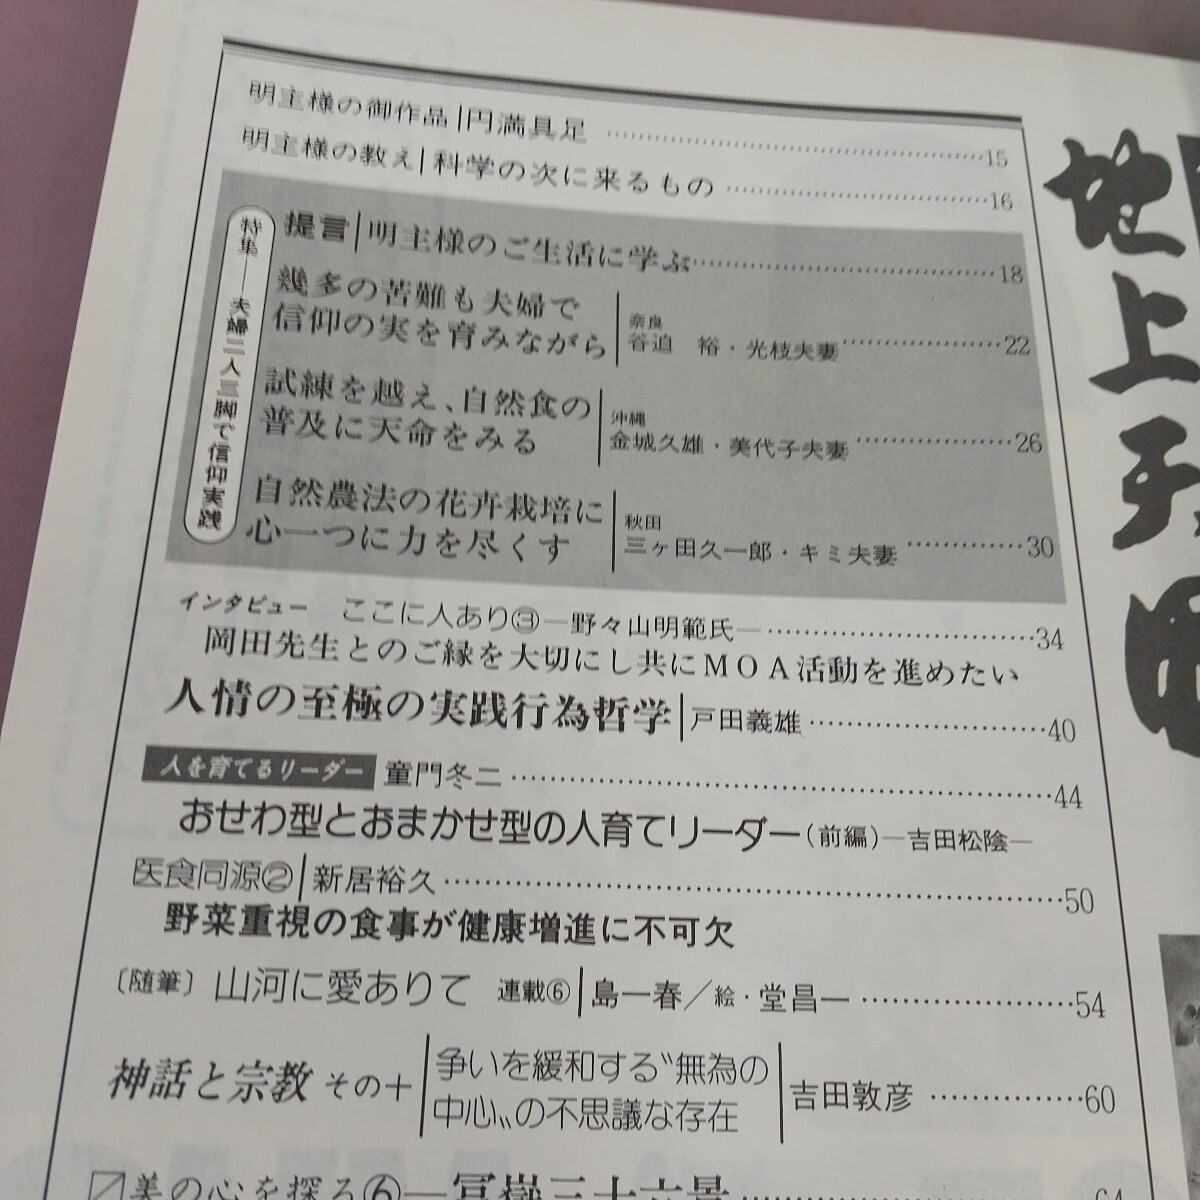 明主様の御作品 円満具足 15
明主様の教え 科学の次に来るもの 16
特集―夫婦二人三脚で信仰実践
提言 明主様のご生活に学ぶ 18
幾多の苦難も夫婦で
信仰の実を育みながら
奈良
谷迫 裕・光枝夫妻 22
試練を越え、自然食の
普及に天命をみる
沖縄
金城久雄・美代子夫妻 26
自然農法の花卉栽培に
心一つに力を尽くす
秋田
三ヶ田久一郎・キミ夫妻 30
インタビュー ここに人あり③―野々山明範氏― 34
岡田先生とのご縁を大切にし共にMOA活動を進めたい
人情の至極の実践行為哲学 戸田義雄 40
人を育てるリーダー 童門冬二 44
おせわ型とおまかせ型の人育てリーダー(前編)―吉田松陰―
医食同源② 新居裕久 50
野菜重視の食事が健康増進に不可欠
〔随筆〕山河に愛ありて 連載⑥ 島一春/絵・堂昌一 54
神話と宗教 その十
争いを緩和する〝無為の
中心〟の不思議な存在
吉田敦彦 60
美の心を探る⑥―冨嶽三十六景 64
地上天